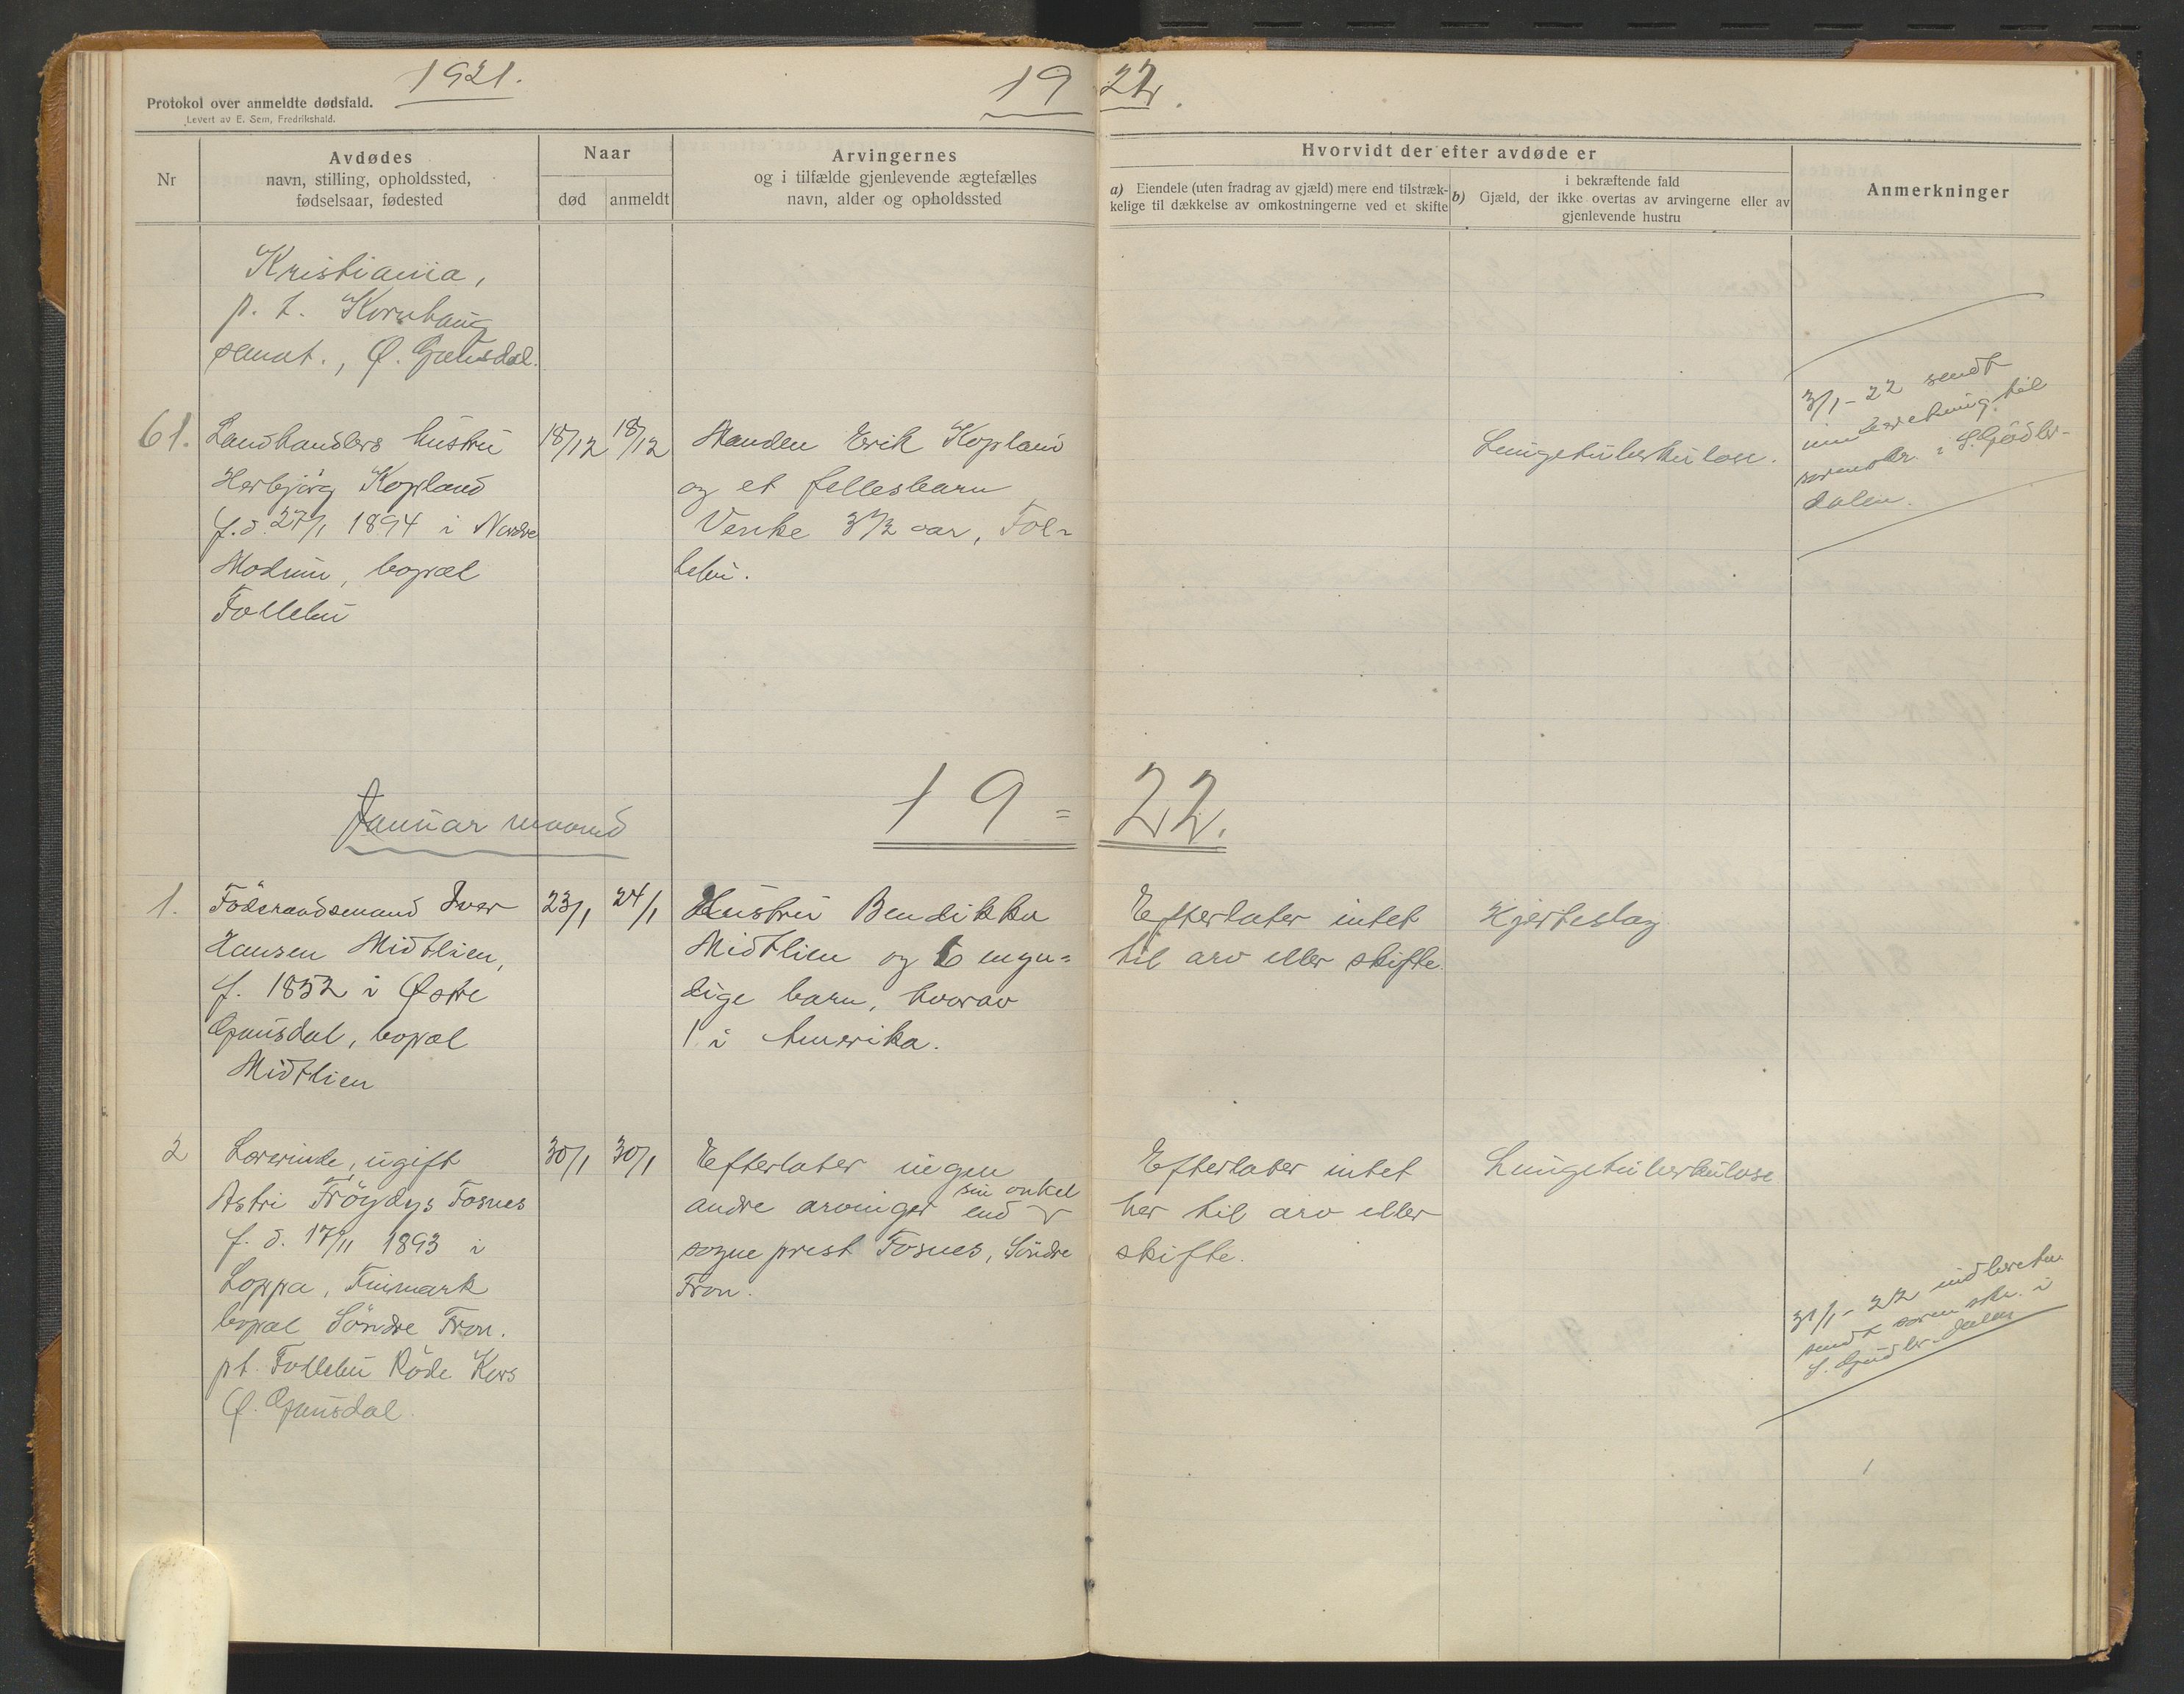 1921.
19 22.
Protokol over anmeldte dødsfald.
Levert av E. Sem, Fredrikshald.
Nr
Avdødes
navn, stilling, opholdssted,
fødselsaar, fødested
Naar
død
anmeldt
Arvingernes
og i tilfælde gjenlevende ægtefælles
navn, alder og opholdssted
Hvorvidt der efter avdøde er
a) Eiendele (uten fradrag av gjæld) mere end tilstræk-
kelige til dækkelse av omkostningerne ved et skifte
i bekræftende fald
b) Gjæld, der ikke overtas av arvingerne eller av
gjenlevende hustru
Anmerkninger
Kristiania,
p. t. Kornhaug
sanat., Ø. Gausdal.
61.
Landhandlers hustru
Herbjörg Kopland
f. d. 27/1 1894 i Nordre
Modum, bopæl
Follebu
18/12
18/12
Manden Erik Kopland
og et fellesbarn
Venke 3 1/2 aar, Fol-
lebu.
Lungetuberkulose.
3/1-22 sendt
innberetning til
sorenskr. i S. Gudbr-
dalen.
Januar maaned
19=22.
1.
Föderaadsmand Iver
Hansen Midtlien,
f. 1852 i Østre
Gausdal, bopæl
Midtlien
23/1
24/1
Hustru Bendikka
Midtlien og 6 myn=
dige barn, hvorav
1 i Amerika.
Efterlater intet
til arv eller skifte.
Hjerteslag
2
Lærerinde, ugift
Astri Fröydys Fosnes
f. d. 17/11 1893 i
Loppa, Finmark
bopæl Söndre Fron.
pt. Follebu Röde Kors
Ø. Gausdal.
30/1
30/1
Efterlater ingen
andre arvinger end sin onkel
sogneprest Fosnes, Söndre
Fron.
Efterlater intet
her til arv eller
skifte.
Lungetuberkulose
31/1-22 indberetn.
sendt sorenskr. i
S. Gudbr.dalen